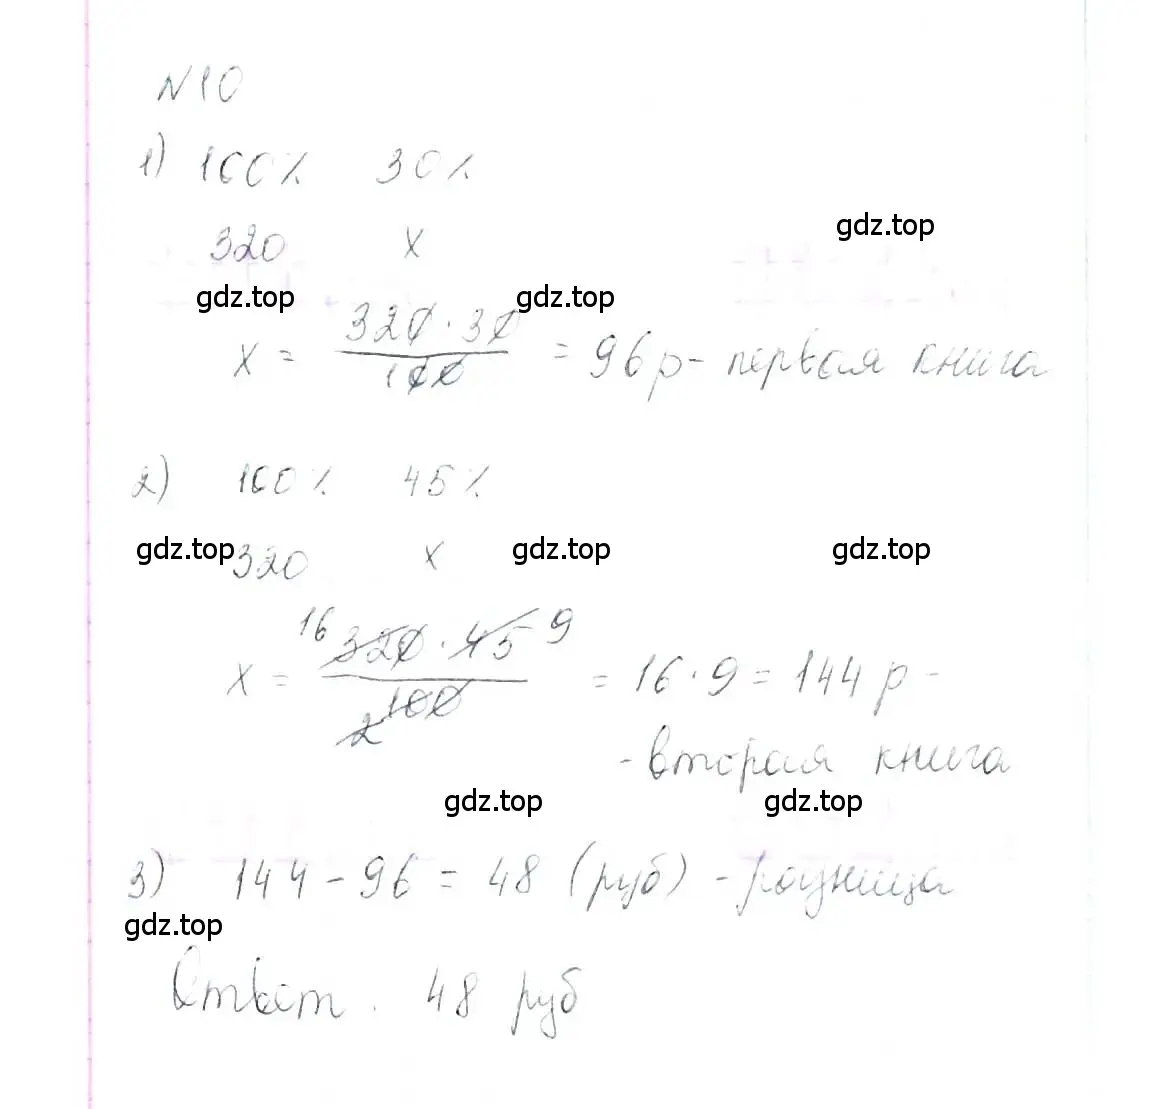 N10
1) 100% 30%
gdz.top
320 x
gdz.top gdz.top
x = 320 · 30 / 100 = 96 р - первая книга
2) 100% 45%
gdz.top 320 x gdz.top gdz.top
16 320 · 45 9
x = / 2 100 = 16 · 9 = 144 р -
- вторая книга
gdz.top gdz.top
3) 144 - 96 = 48 (руб) - разница
gdz.top
Ответ. 48 руб